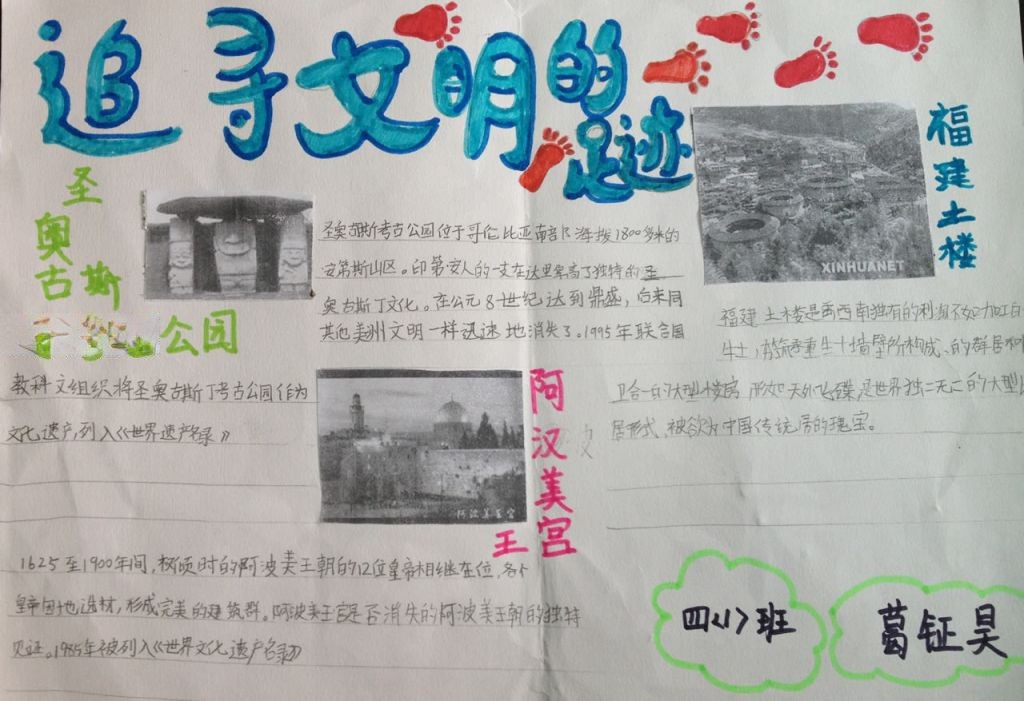 追寻文明的
足迹
圣
奥古斯
公园
圣奥古斯考古公园位于哥伦比亚南部海拨1800多米的
安第斯山区。印第安人的一支在这里
奥古斯丁文化。在公元8世纪达到鼎盛，后来同
其他美洲文明一样迅速地消失了。1995年联合国
教科文组织将圣奥古斯丁考古公园作为
文化遗产，列入《世界遗产名录》
XINHUANET
福建土楼
福建土楼是
生土
卫合一的大型楼房 形如天外飞碟，是世界独一无二的大型
居形式，被
中国传统
房的瑰宝。
阿波美王宫
阿汉美宫
王
1625至1900年间，
时的阿波美王朝的12位皇帝相继在位，各个
皇帝因地选材，形成完美的建筑群。阿波美王宫是否消失的阿波美王朝的独特
见证。1985年被列入《世界文化遗产名录》
四〈1〉班
葛钲昊